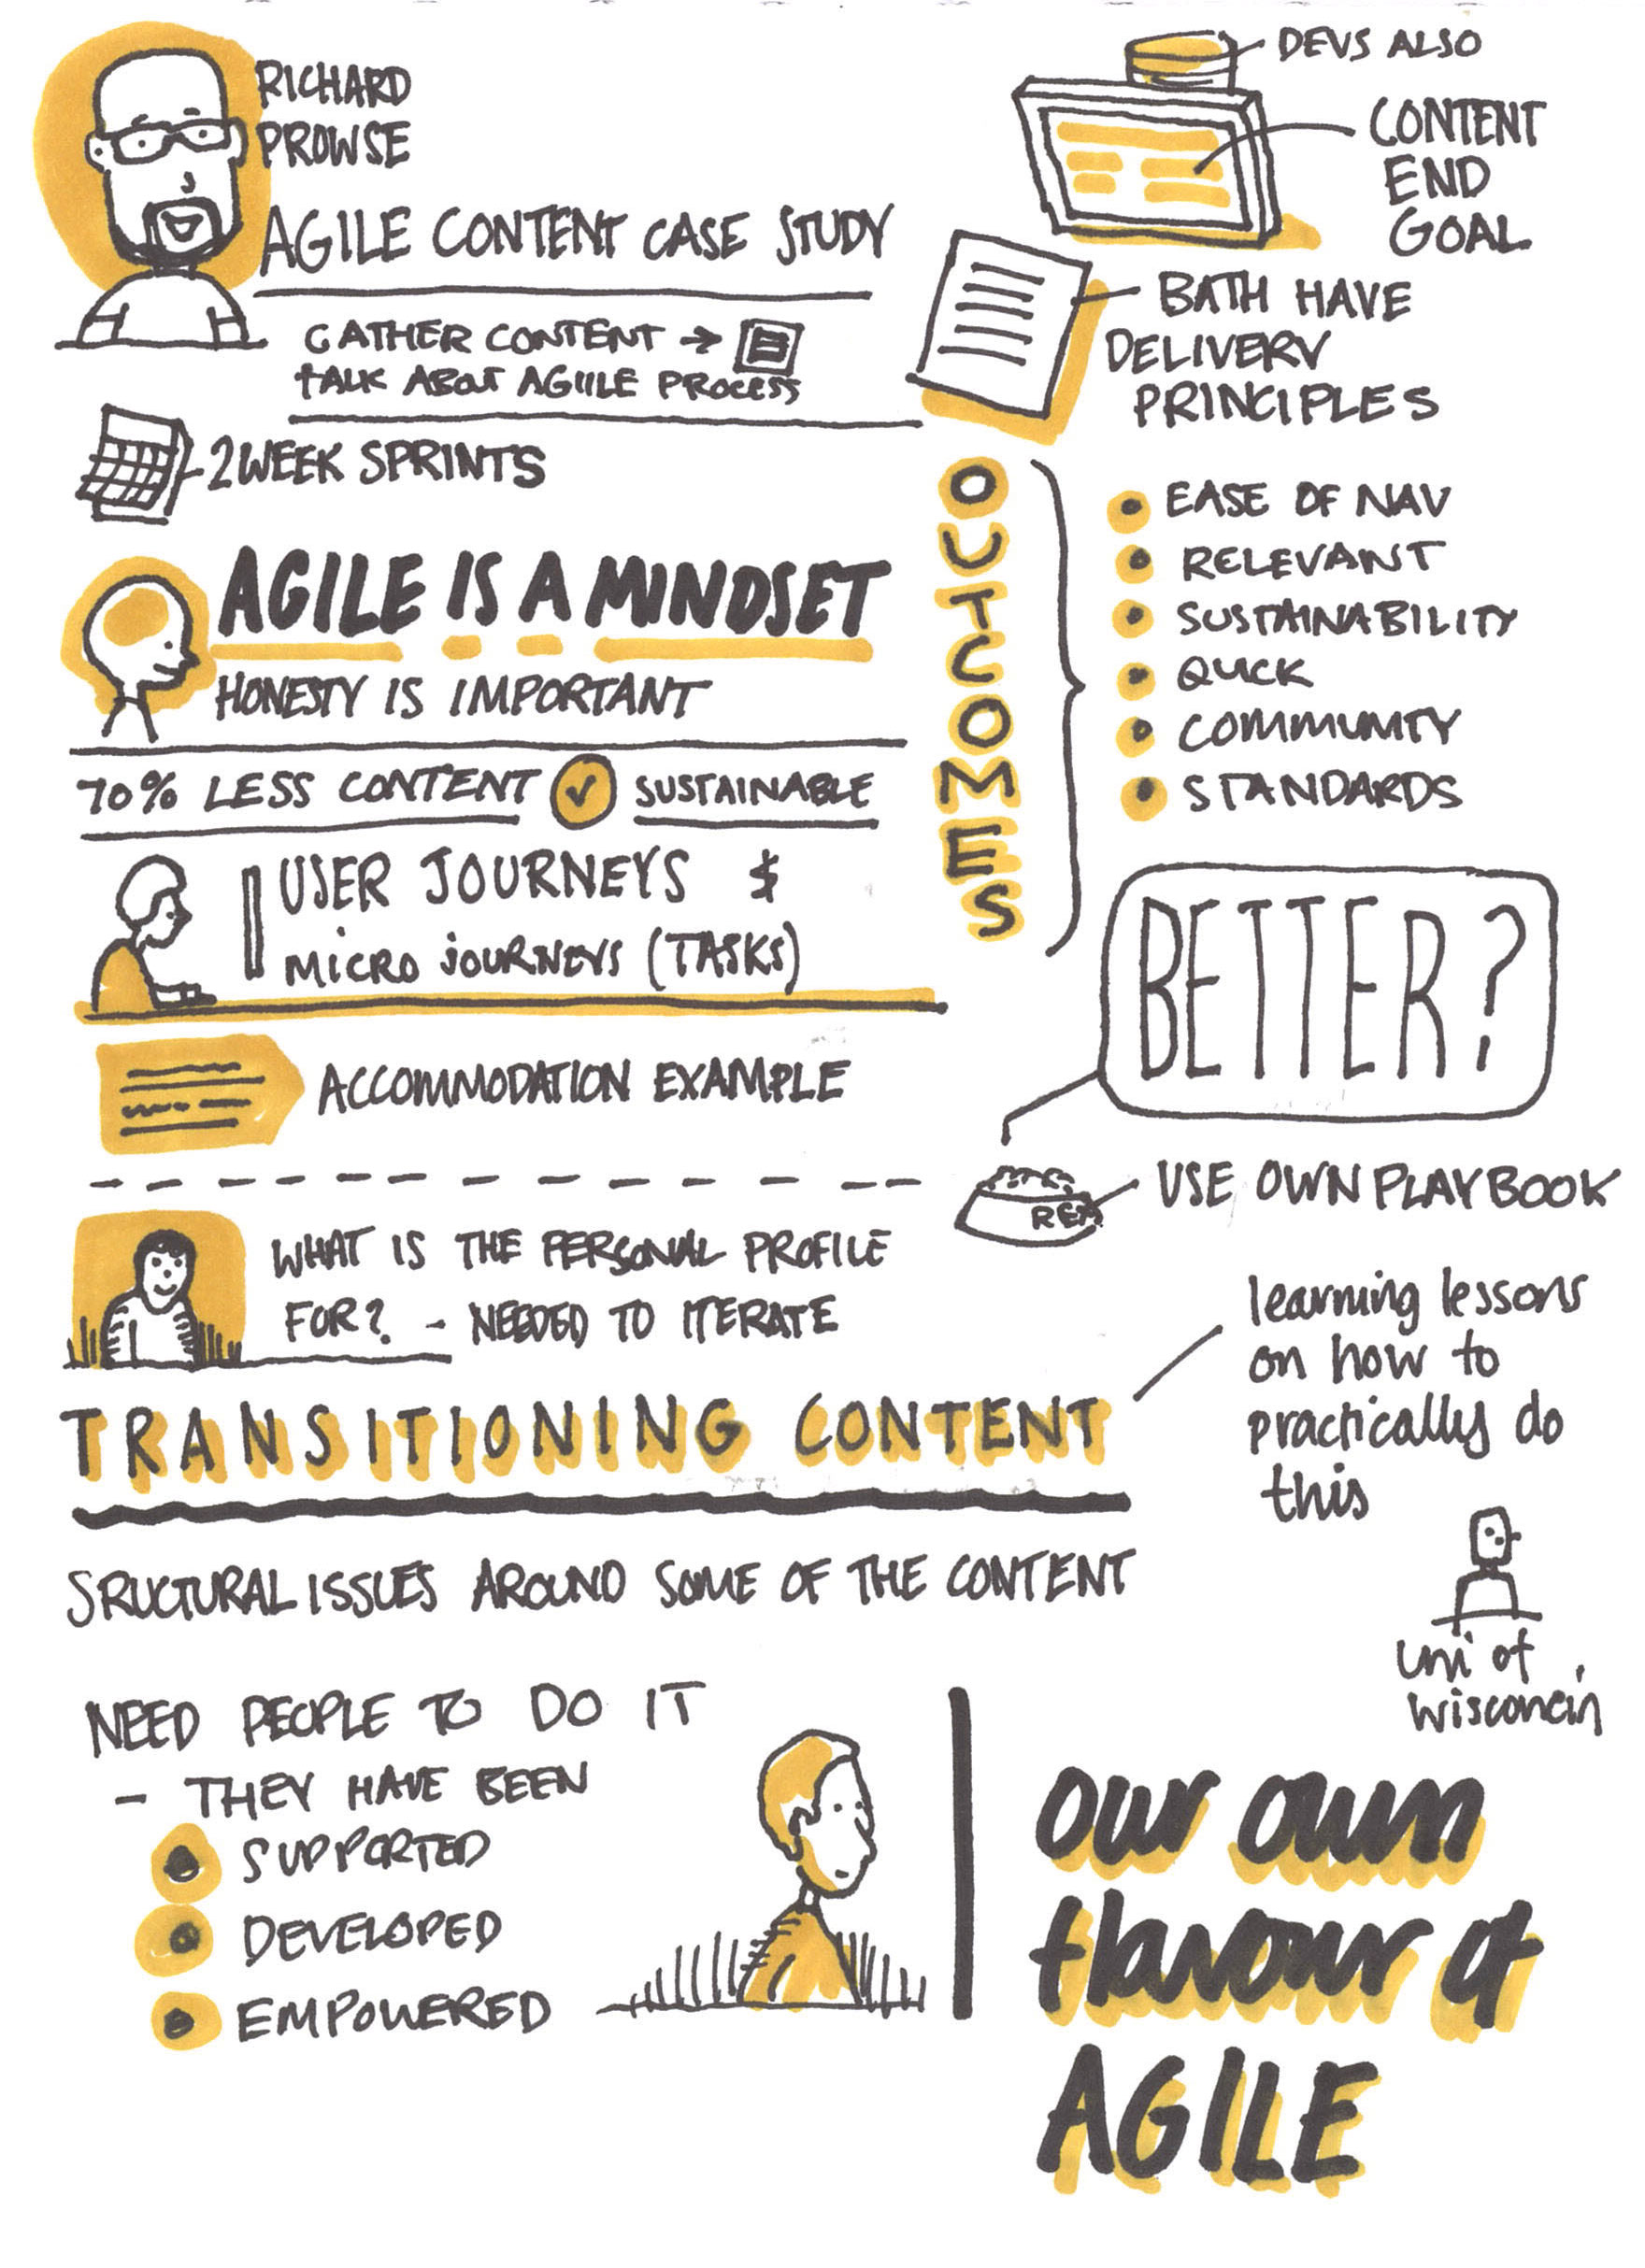 RICHARD
PROWSE
AGILE CONTENT CASE STUDY
GATHER CONTENT →
TALK ABOUT AGIILE PROCESS
2 WEEK SPRINTS
AGILE IS A MINDSET
HONESTY IS IMPORTANT
70% LESS CONTENT ✓ SUSTAINABLE
USER JOURNEYS &
MICRO JOURNEYS (TASKS)
ACCOMMODATION EXAMPLE
WHAT IS THE PERSONAL PROFILE
FOR? - NEEDED TO ITERATE
TRANSITIONING CONTENT
SRUCTURAL ISSUES AROUND SOME OF THE CONTENT
NEED PEOPLE TO DO IT
- THEY HAVE BEEN
SUPPORTED
DEVELOPED
EMPOWERED
DEVS ALSO
CONTENT
END
GOAL
BATH HAVE
DELIVERY
PRINCIPLES
OUTCOMES
EASE OF NAV
RELEVANT
SUSTAINABILITY
QUICK
COMMUNITY
STANDARDS
BETTER?
USE OWN PLAYBOOK
learning lessons
on how to
practically do
this
uni of
wisconcin
our own
flavour of
AGILE